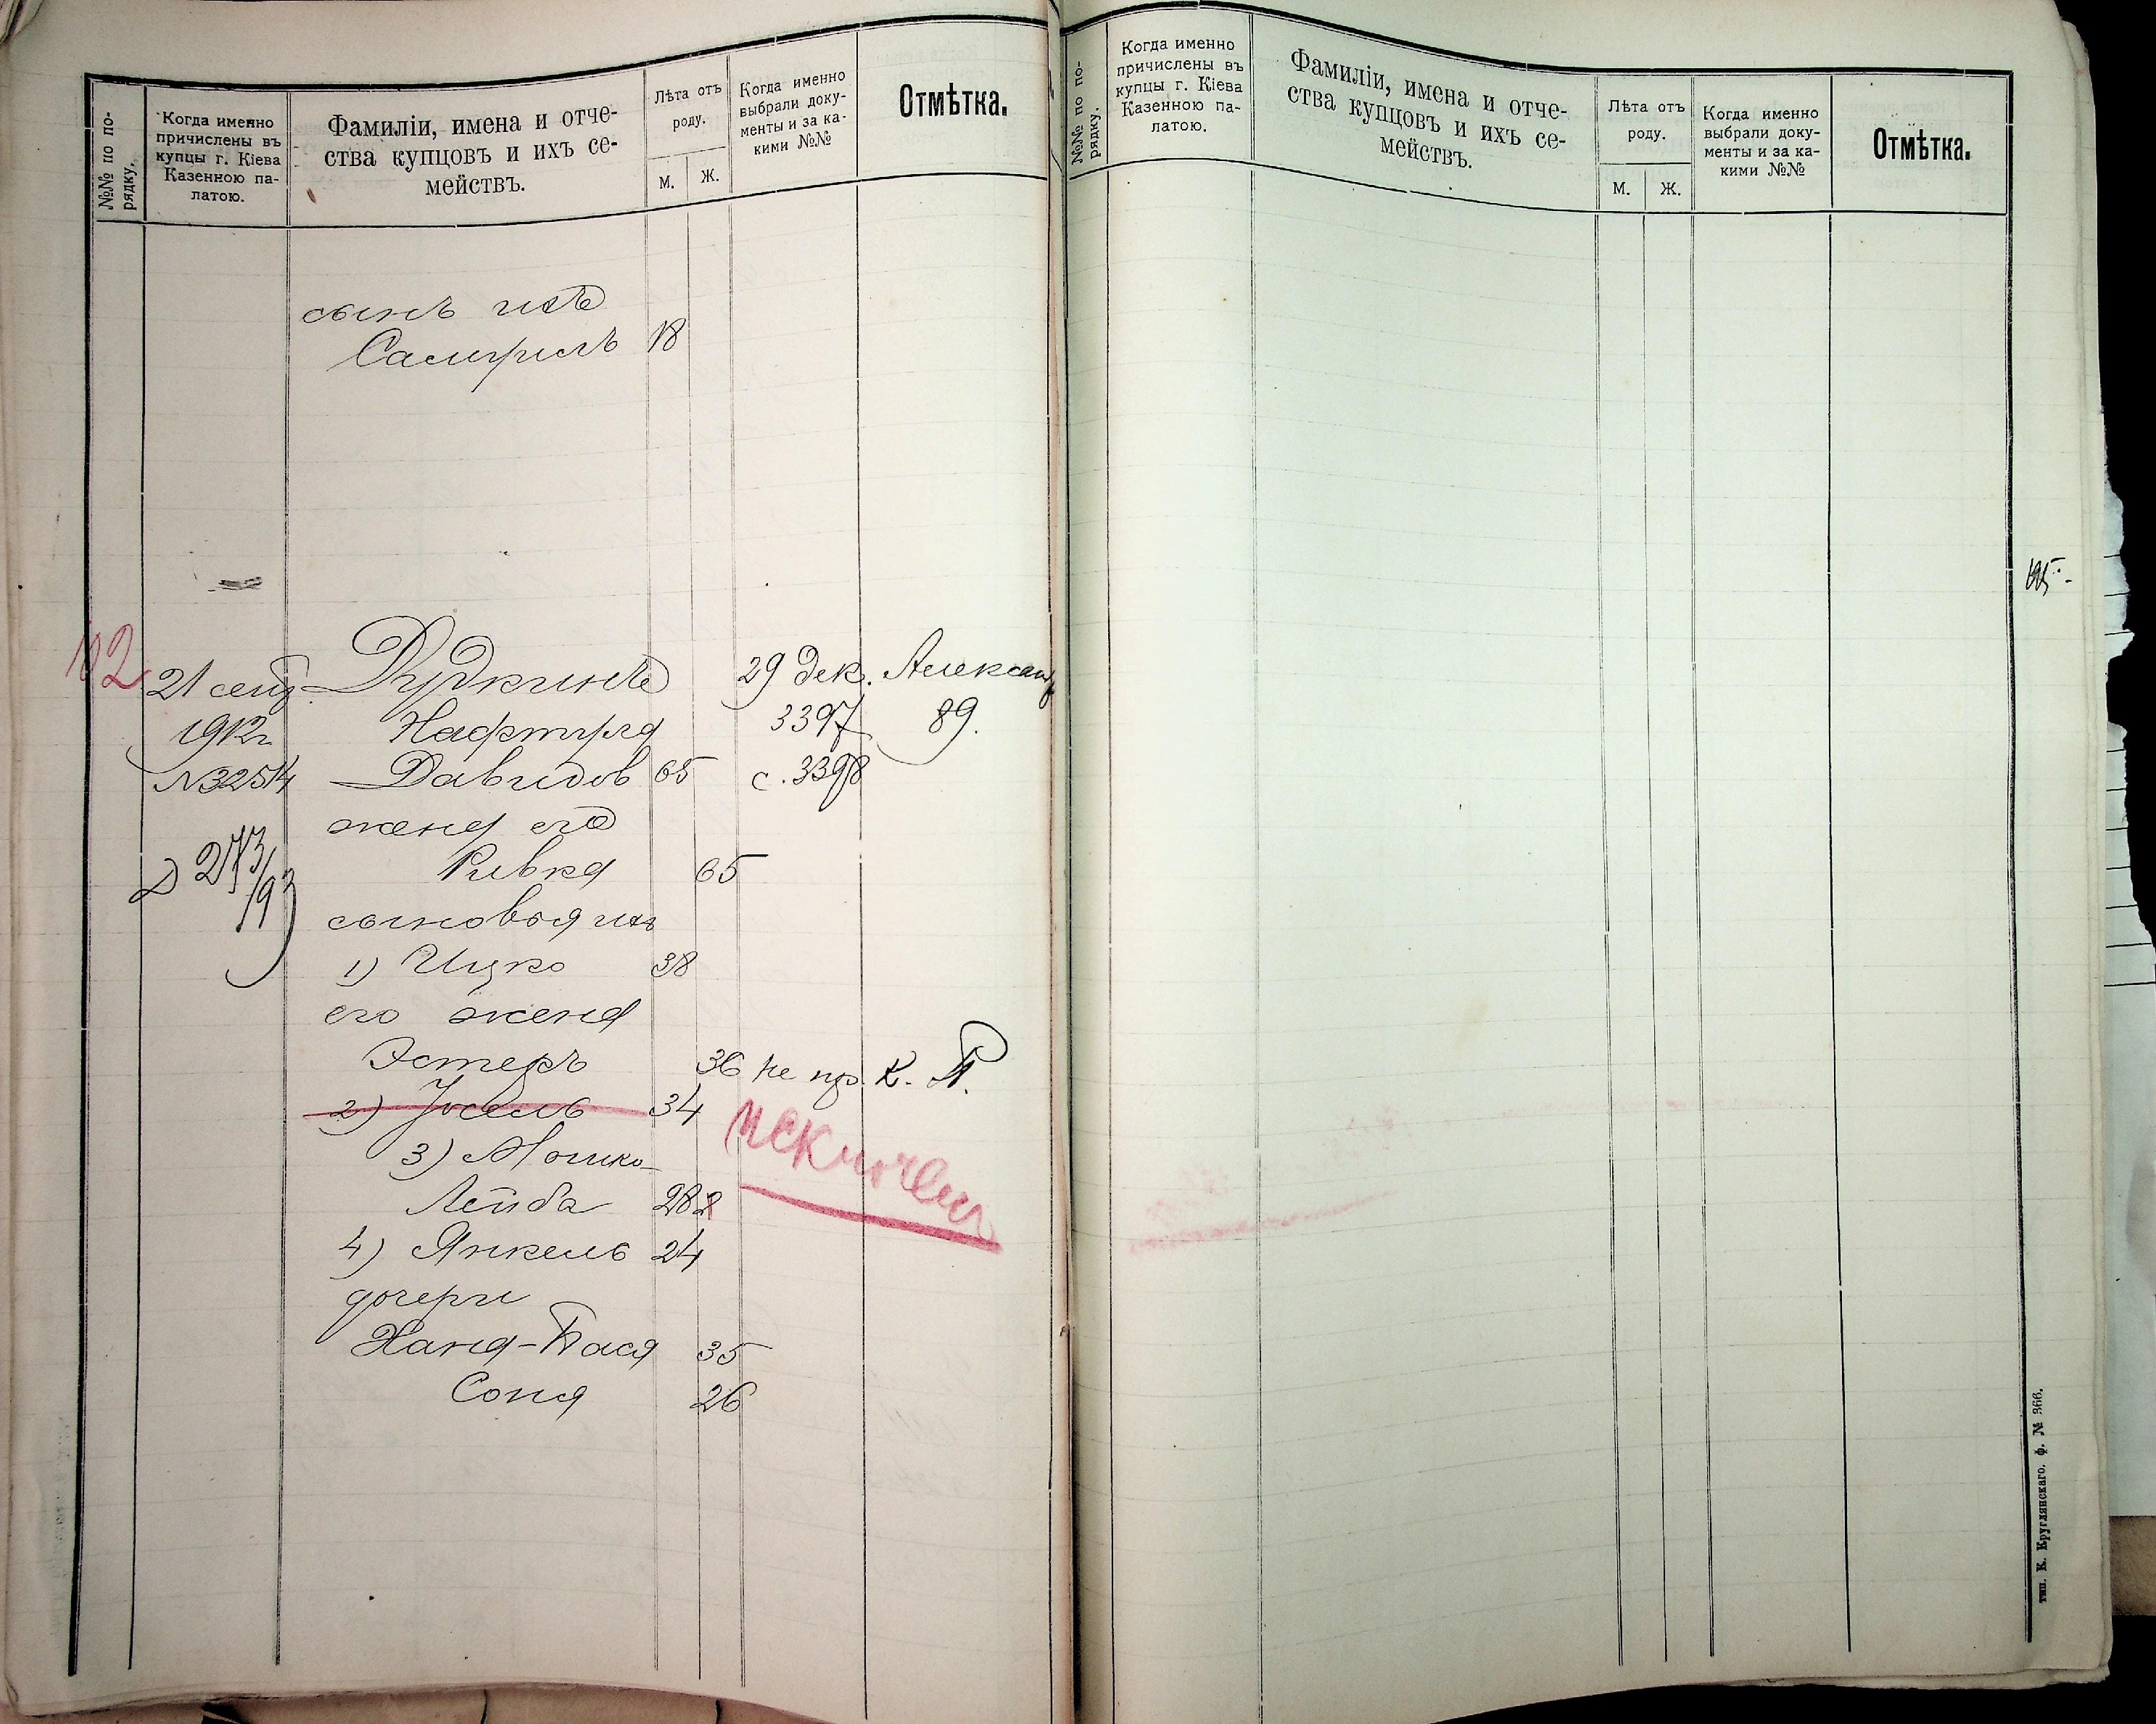 №№ по по-
рядку.
Когда именно
причислены въ
купцы г. Кіева
Казенною па-
латою.
Фамиліи, имена и отче-
ства купцовъ и ихъ се-
мействъ.
Лѣта отъ
роду.
М.
Ж.
Когда именно
выбрали доку-
менты и за ка-
кими №№
Отмѣтка.
сынъ ихъ
Самуилъ 18
102
21 сент. Дудкинъ 29 дек. Александ
1912г. Нафтула 3397 89.
№3254 Давидов 65 с. 3398
жена его
Д 273/93 Ривка 65
сыновья ихъ
1) Ицко 38
его жена
Эстеръ 36 не пр. К. П.
2) Іосель 34
исключен
3) Мошко-
Лейба 28
4) Янкель 24
дочери
Хана-Бася 35
Соня 26
№№ по по-
рядку.
Когда именно
причислены въ
купцы г. Кіева
Казенною па-
латою.
Фамиліи, имена и отче-
ства купцовъ и ихъ се-
мействъ.
Лѣта отъ
роду.
М.
Ж.
Когда именно
выбрали доку-
менты и за ка-
кими №№
Отмѣтка.
тип. К. Круглянскаго. ф. № 366.